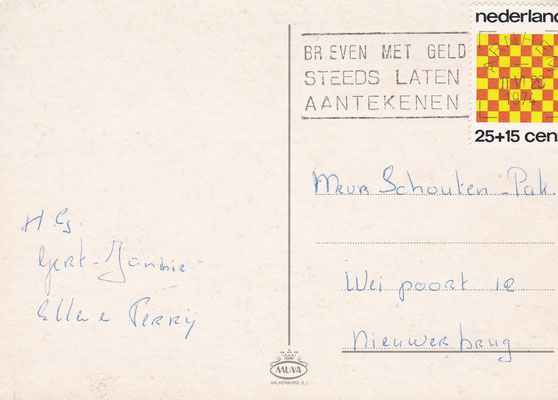 nederland
BR EVEN MET GELD
STEEDS LATEN
AANTEKENEN
1974
25+15 cen
Mevr Schouten-Pak.
Weipoort 12
Nieuwerbrug
H Gr.
Gert-Jannie
Ellen e Ferry
MUVA
VALKENBURG (L.)